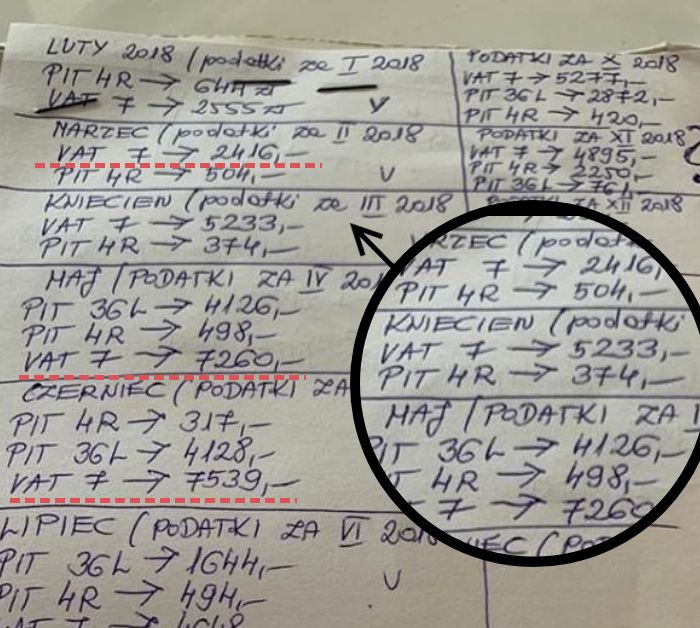 LUTY 2018 (podatki za I 2018
PIT 4R → 644 zł
VAT 7 → 2555 zł V
MARZEC (podatki za II 2018
VAT 7 → 2416,-
PIT 4R → 504,- V
KWIECIEN (podatki za III 2018
VAT 7 → 5233,-
PIT 4R → 374,-
MAJ (PODATKI ZA IV 201
PIT 36L → 4126,-
PIT 4R → 498,-
VAT 7 → 7260,-
CZERWIEC (PODATKI ZA
PIT 4R → 317,-
PIT 36L → 4128,-
VAT 7 → 7539,-
LIPIEC (PODATKI ZA VI 2018
PIT 36L → 1644,-
PIT 4R → 494,- V
VAT 7 →
PODATKI ZA X 2018
VAT 7 → 5277,-
PIT 36L → 2872,-
PIT 4R → 420,-
PODATKI ZA XI 2018
VAT 7 → 4895,-
PIT 4R → 2250,-
PIT 36L → 761,-
PODATKI ZA XII 2018
RZEC (podat
VAT 7 → 2416,
PIT 4R → 504,-
KWIECIEN (podatki
VAT 7 → 5233,-
PIT 4R → 374,-
MAJ (PODATKI ZA I
PIT 36L → 4126,-
IT 4R → 498,-
7 → 7260
IEC (POD